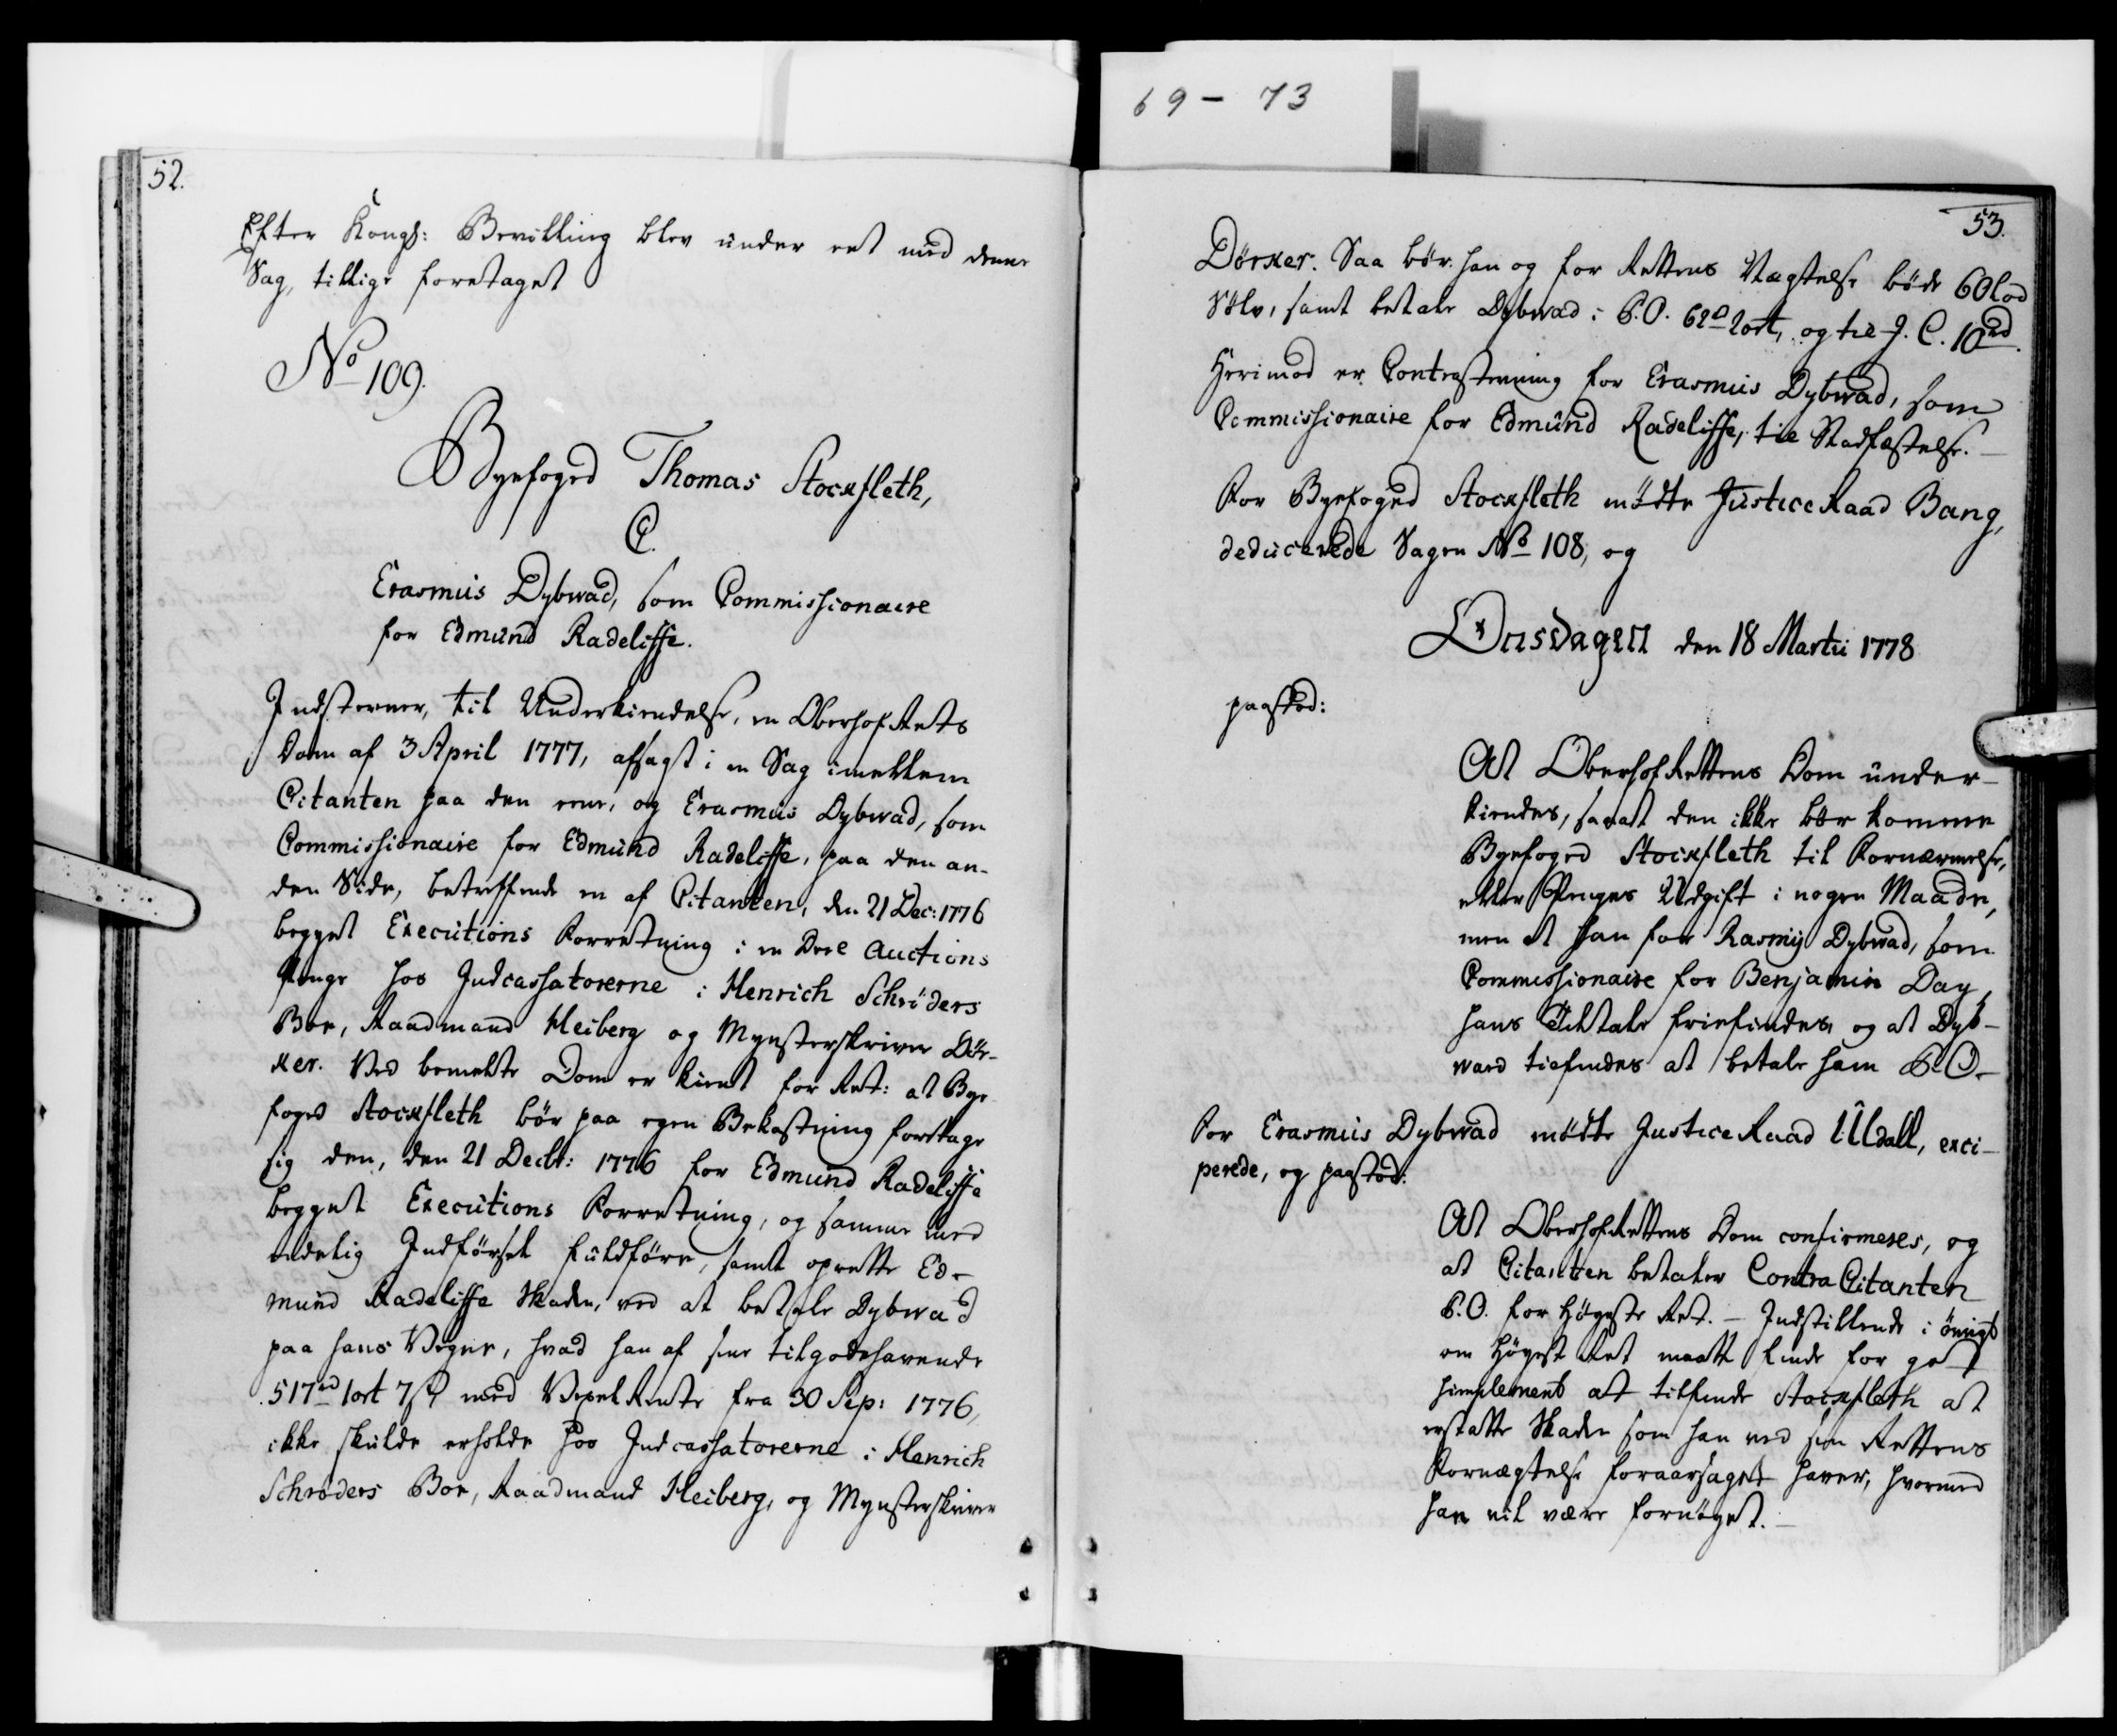 69 - 73
52.
Efter Kongl: Bevilling blev under eet med denne
Sag, tillige foretaget
No 109.
Byefoged Thomas Stockfleth,
C.
Erasmus Dybwad, som Commissionaire
for Edmund Radeliffe.
Indstevner, til Underkiendelse, en OberhofRets
Dom af 3 April 1777, afsagt i en Sag imellem
Citanten paa den eene, og Erasmus Dybwad, som
Commissionaire for Edmund Radeliffe, paa den an-
den Side, betreffende en af Citanten, den 21 Dec: 1776
begynt Executions Forretning i en Deel Auctions
Penge hos Indcassatorerne i Henrich Schröders
Boe, Raadmand Heiberg og Mynsterskriver Dör-
ker. Ved bemeldte Dom er kiendt for Ret: at Bye
foged Stockfleth bör paa egen Bekostning foretage
sig den, den 21 Decbr: 1776 for Edmund Radeliffe
begynt Executions Forretning, og samme med
endelig Indförsel fuldföre, samt oprette Ed-
mund Radeliffe Skaden, ved at betale Dybwad
paa hans Vegne, hvad han af sine tilgodehavende
517 rd 1 ort 7 s med Vexel Rente fra 30 Sep: 1776,
ikke skulde erholde hos Indcassatorerne i Henrich
Schröders Boe, Raadmand Heiberg, og Mynsterskriver
53.
Dörker. Saa bör han og for Rettens Nægtelse böde 60 Lod
Sölv, samt betale Dybwad i P.O. 62 rd 2 ort, og til J. C. 10 rd.
Herimod er Contrastevning for Erasmus Dybwad, som
Commissionaire for Edmund Radeliffe, til Stadfæstelse.
For Byefoged Stockfleth mödte JusticeRaad Bang,
deducerede Sagen No 108, og
Onsdagen den 18 Martii 1778
paastod:
At OberhofRettens Dom under-
kiendes, saa at den ikke bör komme
Byefoged Stockfleth til Fornærmelse,
eller Penges Udgift i nogen Maade,
men at han for Rasmus Dybwad, som
Commissionaire for Benjamin Day,
hans Tiltale friefindes, og at Dyb-
wad tilfindes at betale ham P.O.
For Erasmus Dybwad mödte JusticeRaad Uldall, exci-
perede, og paastod:
At OberhofRettens Dom confirmeres, og
at Citanten betaler ContraCitanten
P.O. for Höyeste Ret. - Indstillende i övrigt
om Höyeste Ret maatte finde for godt
simplement at tilfinde Stockfleth at
erstatte Skaden som han ved sin Rettens
Fornægtelse foraarsaget haver, hvormed
han vil være fornöyet.